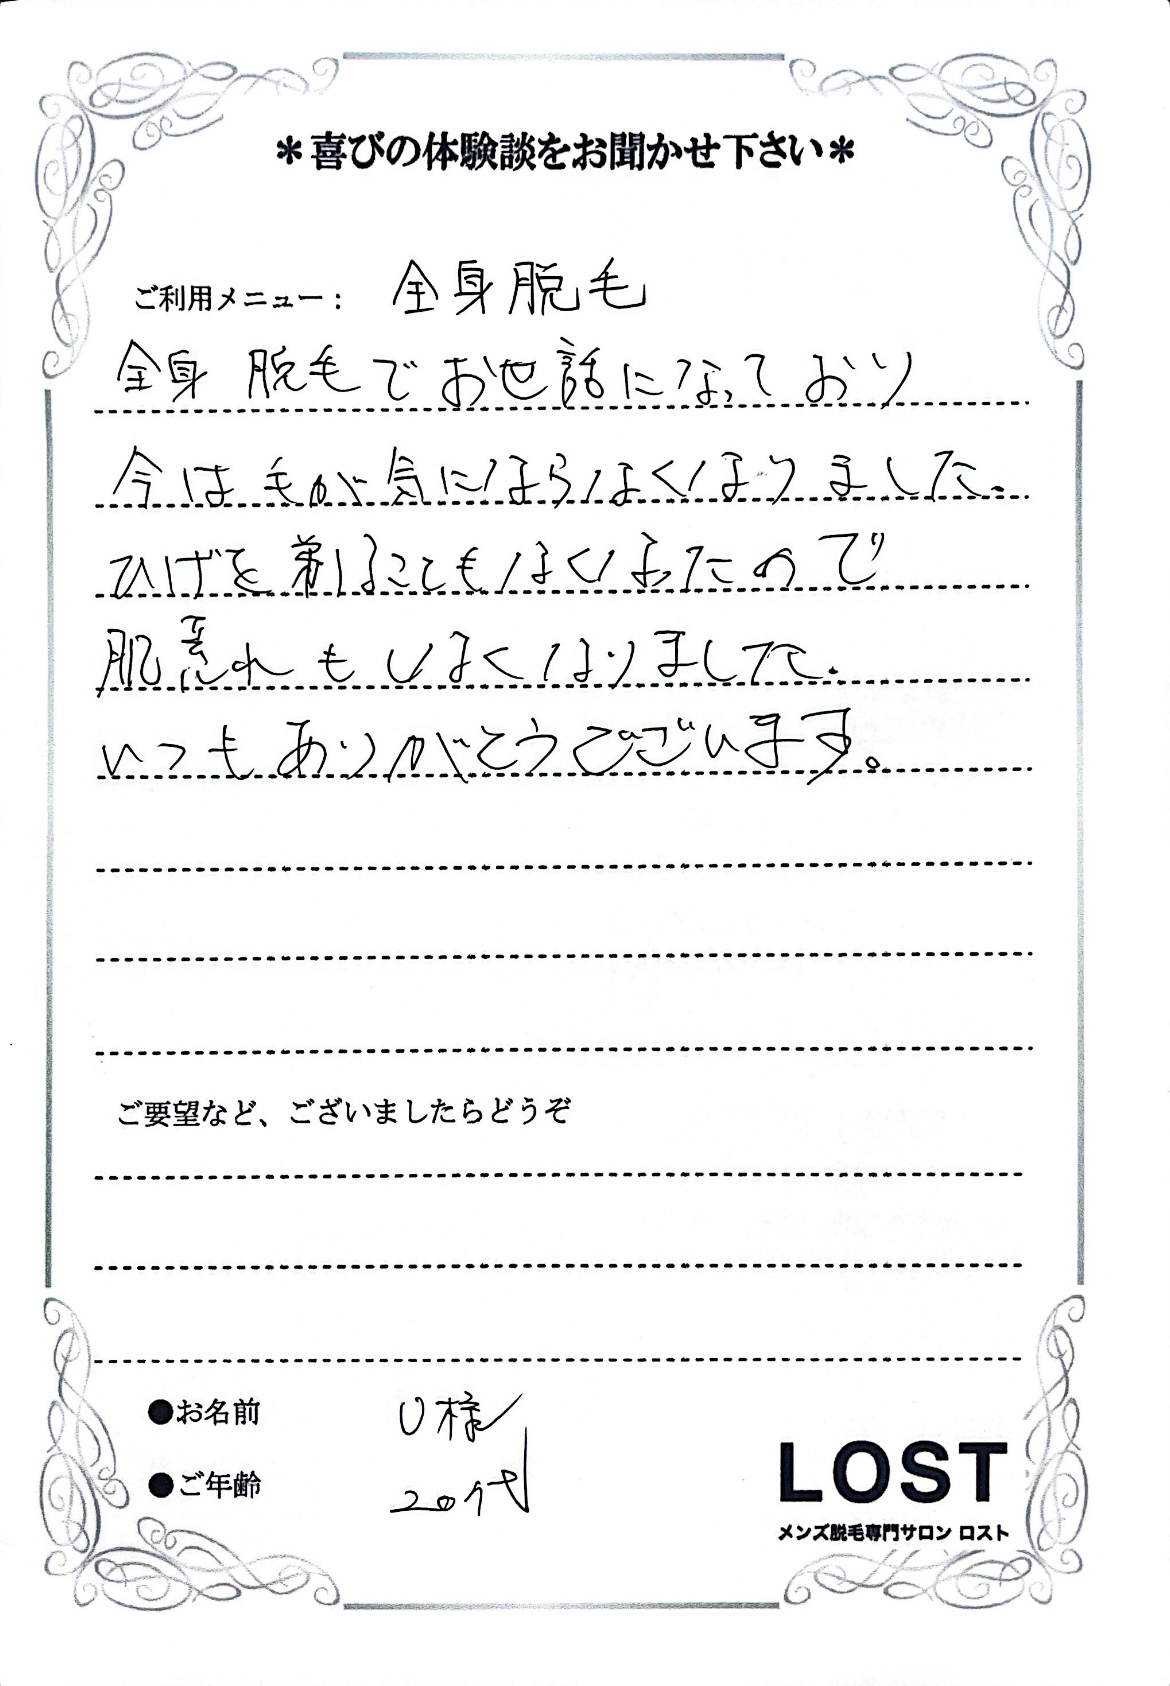 ＊喜びの体験談をお聞かせ下さい＊
ご利用メニュー： 全身脱毛
全身脱毛でお世話になっており
今は毛が気にならなくなりました.
ひげを剃ることもなくなったので
肌荒れもしなくなりました.
いつもありがとうございます。
ご要望など、ございましたらどうぞ
●お名前 U様
●ご年齢 20代
LOST
メンズ脱毛専門サロン ロスト